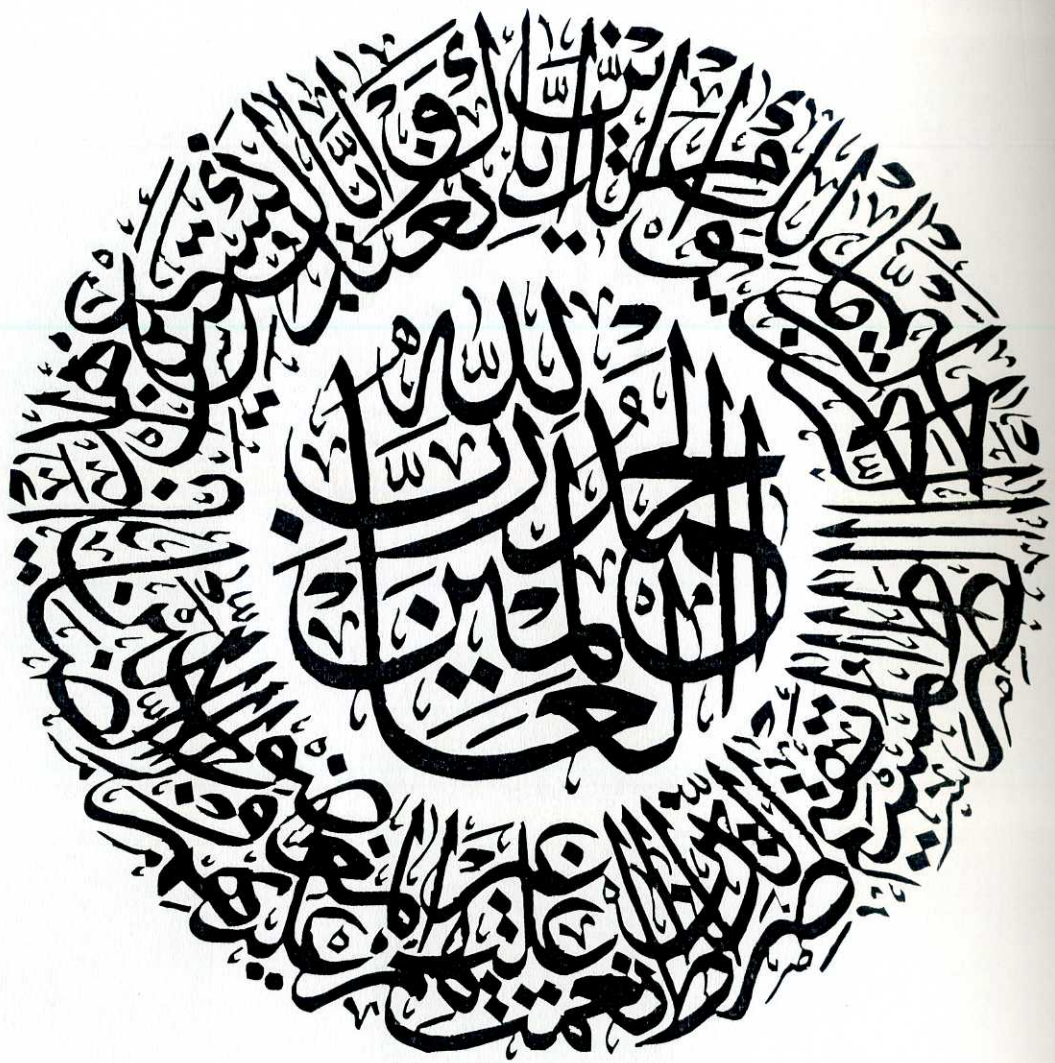 الحمد لله
رب
العالمين
الرحمن الرحيم مالك يوم الدين إياك نعبد وإياك نستعين اهدنا
الصراط المستقيم صراط الذين أنعمت عليهم غير المغضوب عليهم ولا الضالين